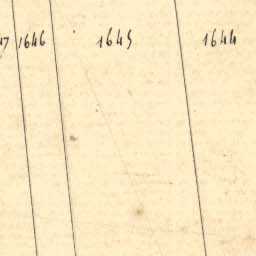 1646 1645 1644